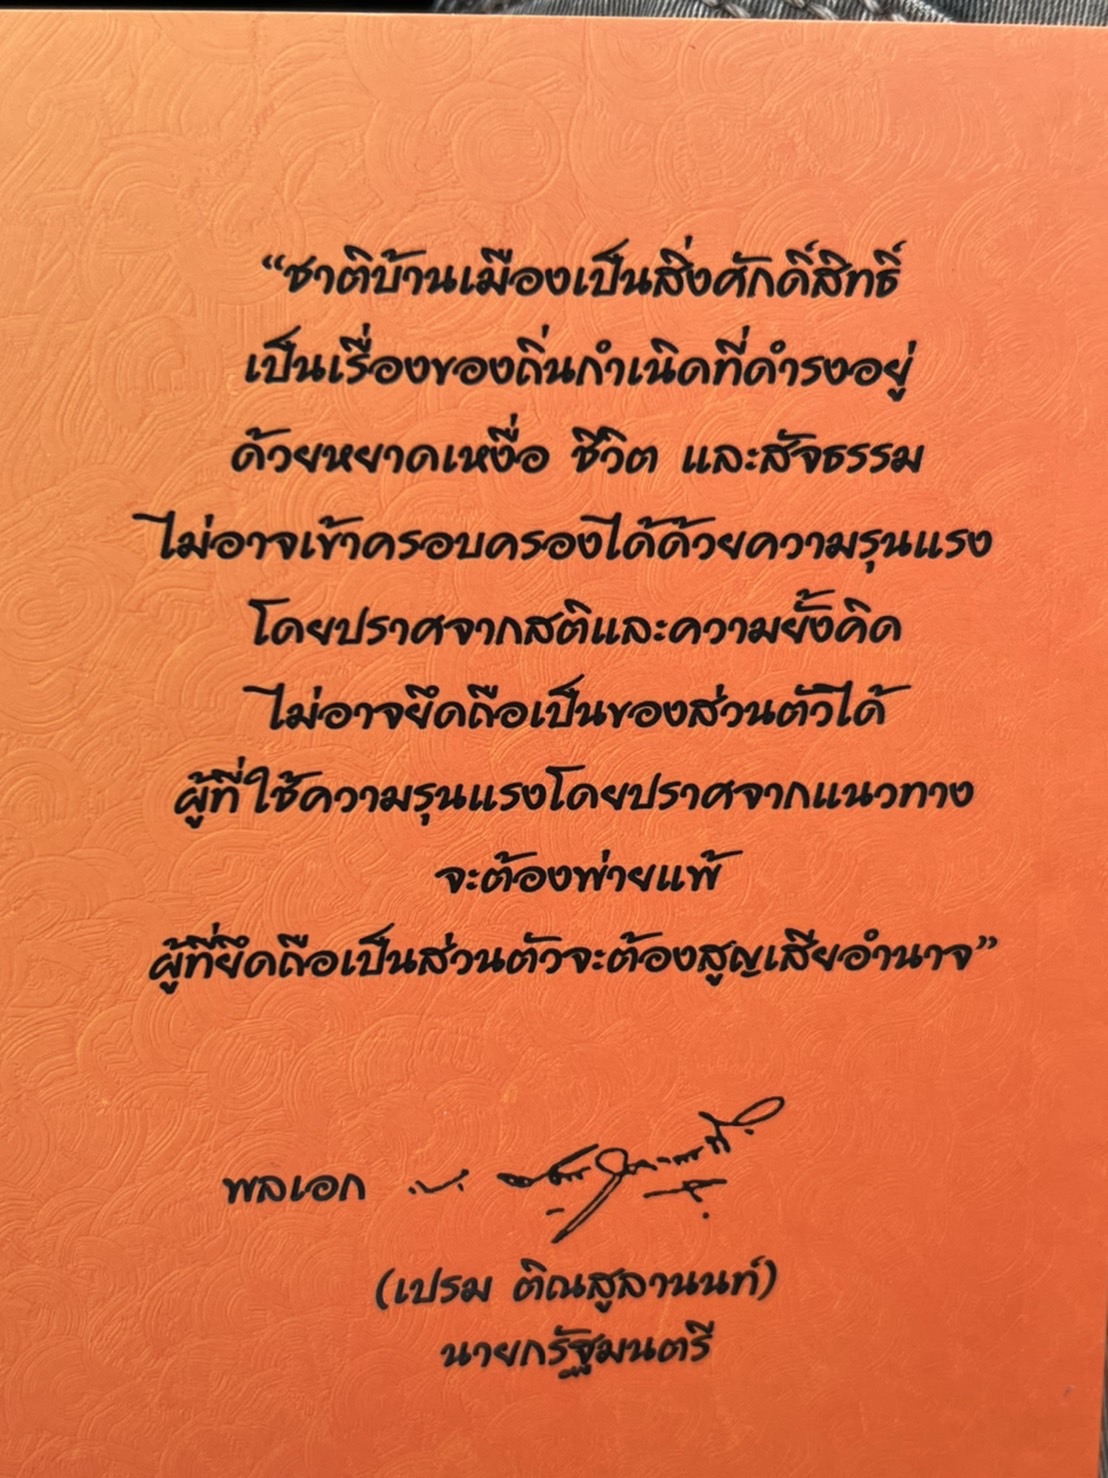 “ชาติบ้านเมืองเป็นสิ่งศักดิ์สิทธิ์
เป็นเรื่องของถิ่นกำเนิดที่ดำรงอยู่
ด้วยหยาดเหงื่อ ชีวิต และสัจธรรม
ไม่อาจเข้าครอบครองได้ด้วยความรุนแรง
โดยปราศจากสติและความยั้งคิด
ไม่อาจยึดถือเป็นของส่วนตัวได้
ผู้ที่ใช้ความรุนแรงโดยปราศจากแนวทาง
จะต้องพ่ายแพ้
ผู้ที่ยึดถือเป็นส่วนตัวจะต้องสูญเสียอำนาจ”
พลเอก
(เปรม ติณสูลานนท์)
นายกรัฐมนตรี